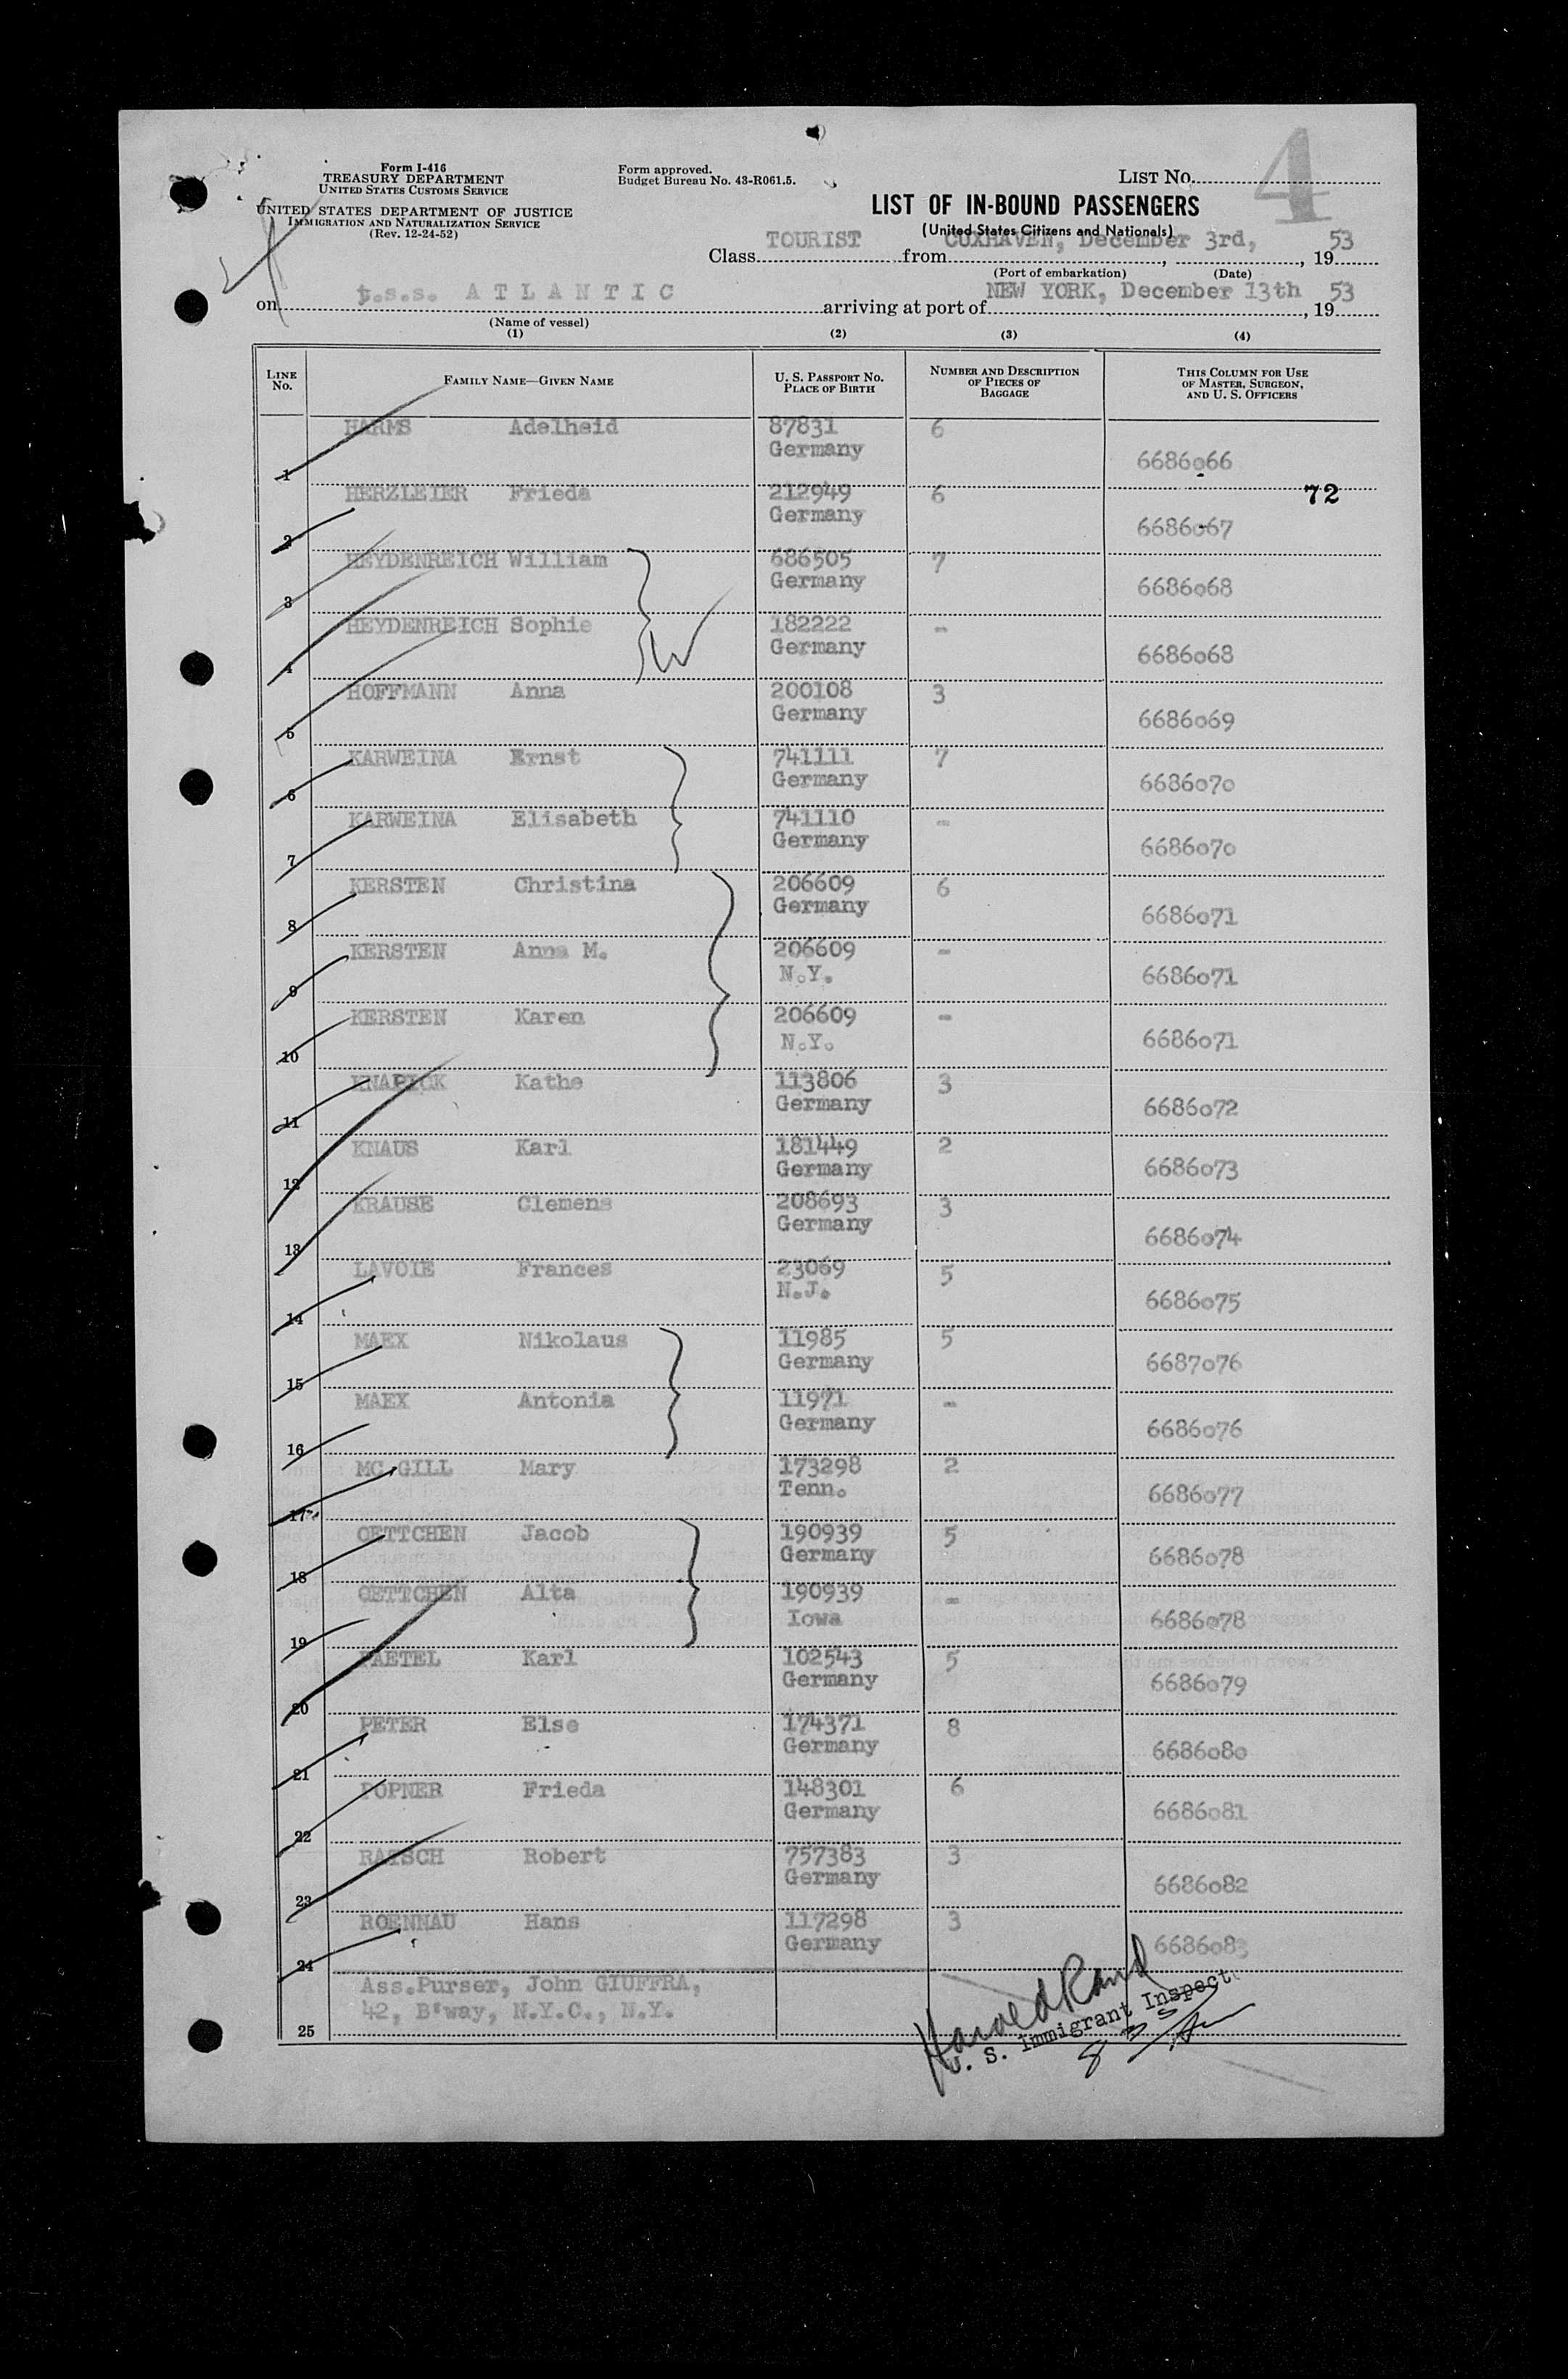 Form I-416
TREASURY DEPARTMENT
UNITED STATES CUSTOMS SERVICE
UNITED STATES DEPARTMENT OF JUSTICE
IMMIGRATION AND NATURALIZATION SERVICE
(Rev. 12-24-52)
Form approved.
Budget Bureau No. 43-R061.5.
LIST No. 4
LIST OF IN-BOUND PASSENGERS
(United States Citizens and Nationals)
Class TOURIST from CUXHAVEN, December 3rd, , 1953
(Port of embarkation) (Date)
on t.s.s. ATLANTIC arriving at port of NEW YORK, December 13th , 1953
(Name of vessel)
(1) (2) (3) (4)
LINE No. FAMILY NAME—GIVEN NAME U. S. PASSPORT No. PLACE OF BIRTH NUMBER AND DESCRIPTION OF PIECES OF BAGGAGE THIS COLUMN FOR USE OF MASTER, SURGEON, AND U. S. OFFICERS
1 HARMS Adelheid 87831 Germany 6 6686066
72
2 HERZLEIER Frieda 212949 Germany 6 6686067
3 HEYDENREICH William 686505 Germany 7 6686068
4 HEYDENREICH Sophie 182222 Germany - 6686068
5 HOFFMANN Anna 200108 Germany 3 6686069
6 KARWEINA Ernst 741111 Germany 7 6686070
7 KARWEINA Elisabeth 741110 Germany - 6686070
8 KERSTEN Christina 206609 Germany 6 6686071
9 KERSTEN Anna M. 206609 N.Y. - 6686071
10 KERSTEN Karen 206609 N.Y. - 6686071
11 Kathe 113806 Germany 3 6686072
12 KNAUS Karl 181449 Germany 2 6686073
13 KRAUSE Clemens 208693 Germany 3 6686074
14 LAVOIE Frances 23069 N.J. 5 6686075
15 MAEX Nikolaus 11985 Germany 5 6687076
16 MAEX Antonia 11971 Germany - 6686076
17 MC GILL Mary 173298 Tenn. 2 6686077
18 OETTCHEN Jacob 190939 Germany 5 6686078
19 OETTCHEN Alta 190939 Iowa - 6686078
20 PAETEL Karl 102543 Germany 5 6686079
21 PETER Else 174371 Germany 8 6686080
22 POPNER Frieda 148301 Germany 6 6686081
23 RATSCH Robert 757383 Germany 3 6686082
24 ROENNAU Hans 117298 Germany 3 6686083
Ass.Purser, John GIUFFRA,
42, B'way, N.Y.C., N.Y.
25
Harold Rand
U. S. Immigrant Inspect